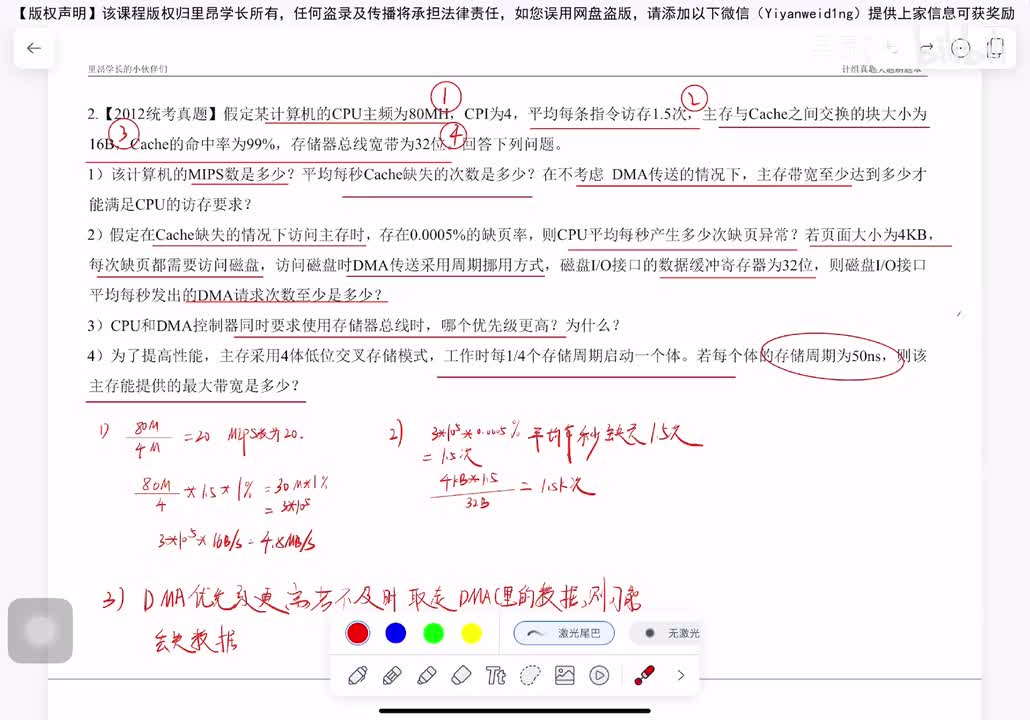 【版权声明】该课程版权归里昂学长所有，任何盗录及传播将承担法律责任，如您误用网盘盗版，请添加以下微信（Yiyanweid1ng）提供上家信息可获奖励
里昂学长的小伙伴们
计组真题大题刷题本
① ②
2.【2012统考真题】假定某计算机的CPU主频为80MH，CPI为4，平均每条指令访存1.5次，主存与Cache之间交换的块大小为
③ ④
16B，Cache的命中率为99%，存储器总线宽带为32位。回答下列问题。
1）该计算机的MIPS数是多少？平均每秒Cache缺失的次数是多少？在不考虑 DMA传送的情况下，主存带宽至少达到多少才
能满足CPU的访存要求？
2）假定在Cache缺失的情况下访问主存时，存在0.0005%的缺页率，则CPU平均每秒产生多少次缺页异常？若页面大小为4KB，
每次缺页都需要访问磁盘，访问磁盘时DMA传送采用周期挪用方式，磁盘I/O接口的数据缓冲寄存器为32位，则磁盘I/O接口
平均每秒发出的DMA请求次数至少是多少？
3）CPU和DMA控制器同时要求使用存储器总线时，哪个优先级更高？为什么？
4）为了提高性能，主存采用4体低位交叉存储模式，工作时每1/4个存储周期启动一个体。若每个体的存储周期为50ns，则该
主存能提供的最大带宽是多少？
1) 80M/4M =20 MIPS数为20.
80M/4 *1.5*1% =30M*1%
=3*10^5
3*10^5*16B/s=4.8MB/s
2) 3*10^5*0.0005% 平均每秒缺页1.5次
=1.5次
4KB*1.5/32B =1.5K次
3) DMA优先级更高若不及时取走DMAC里的数据,则可能
会失数据
激光尾巴
无激光
Tt